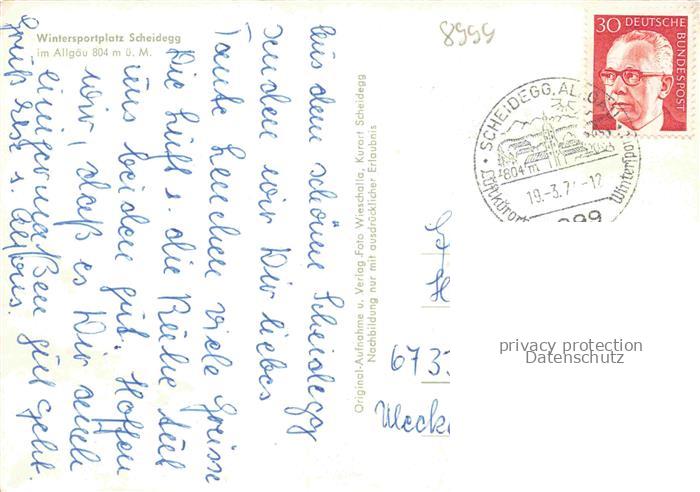 Wintersportplatz Scheidegg
im Allgäu 804 m ü. M.
Aus dem schönen Scheidegg
senden wir Dir liebes
Tante Lenchen viele Grüsse
Die Luft u. die Ruhe tut
uns beiden gut. Hoffen
wir, daß es Dir auch
einigermaßen gut geht.
Gruß Rese u. Alfons.
Original-Aufnahme u. Verlag Foto Wieschalla, Kurort Scheidegg
Nachbildung nur mit ausdrücklicher Erlaubnis
8999
30 DEUTSCHE
BUNDESPOST
SCHEIDEGG, ALLGÄU
804 m
19.-3.7 -12
Luftkurort
Wintersport
899
673
Meck
privacy protection
Datenschutz